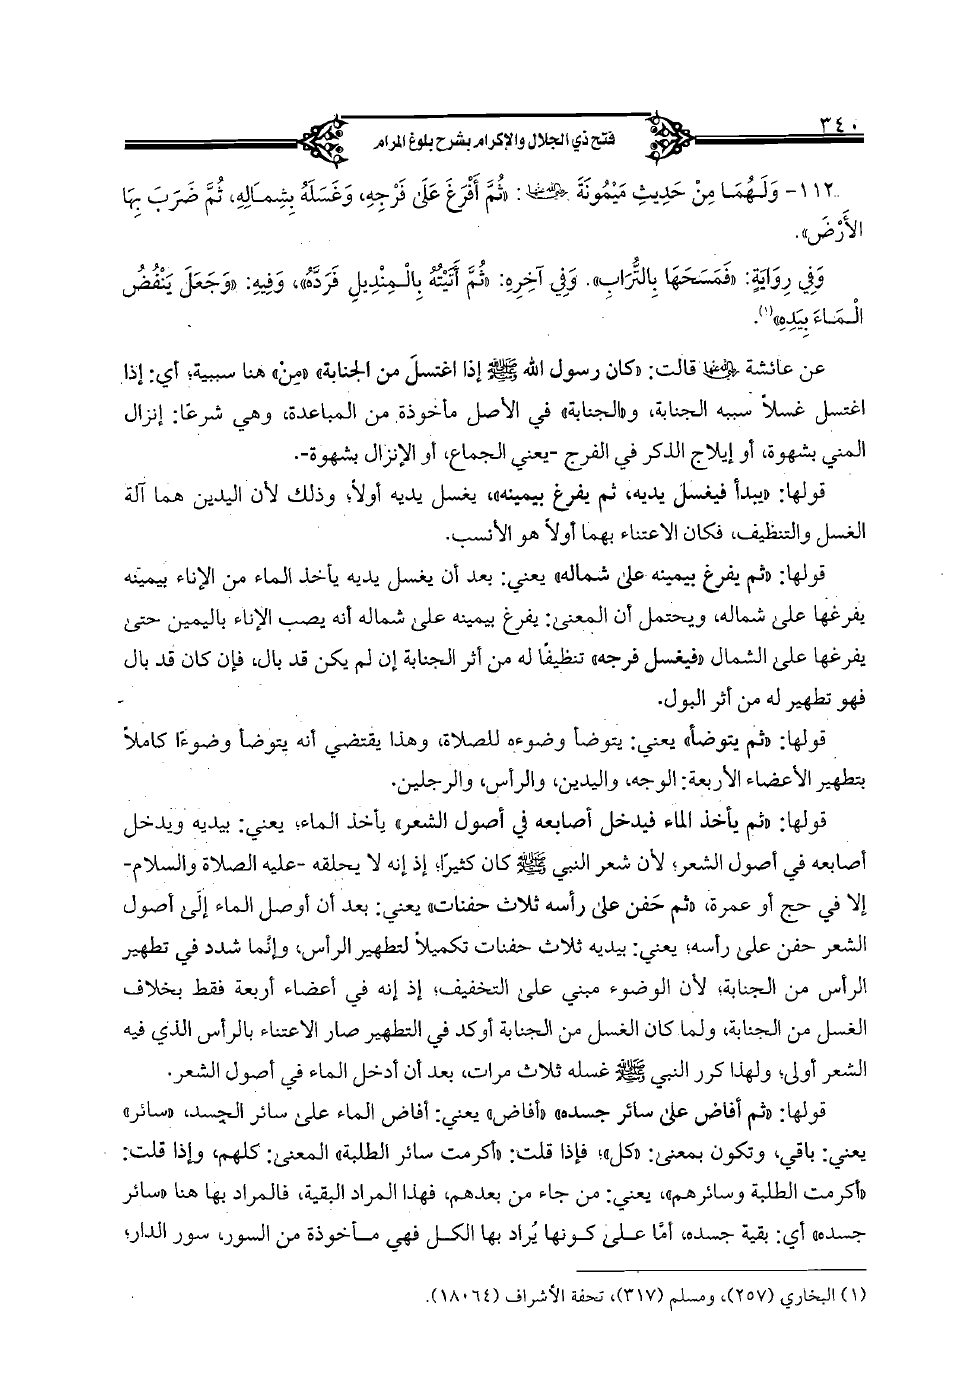 ٣٤٠
فتح ذي الجلال والإكرام بشرح بلوغ المرام
١١٢- وَلَهُمَا مِنْ حَدِيثِ مَيْمُونَةَ رضي الله عنها: «ثُمَّ أَفْرَغَ عَلَى فَرْجِهِ، وَغَسَلَهُ بِشِمَالِهِ، ثُمَّ ضَرَبَ بِهَا
الأَرْضَ».
وَفِي رِوَايَةٍ: «فَمَسَحَهَا بِالتُّرَابِ». وَفِي آخِرِهِ: «ثُمَّ أَتَيْتُهُ بِالْمِنْدِيلِ فَرَدَّهُ»، وَفِيهِ: «وَجَعَلَ يَنْفُضُ
الْمَاءَ بِيَدِهِ»(١).
عن عائشة رضي الله عنها قالت: «كان رسول الله ﷺ إذا اغتسلَ من الجنابة» «مِنْ» هنا سببية؛ أي: إذا
اغتسل غسلاً سببه الجنابة، و«الجنابة» في الأصل مأخوذة من المباعدة، وهي شرعًا: إنزال
المني بشهوة، أو إيلاج الذكر في الفرج -يعني الجماع، أو الإنزال بشهوة-.
قولها: «يبدأ فيغسل يديه، ثم يفرغ بيمينه»، يغسل يديه أولاً؛ وذلك لأن اليدين هما آلة
الغسل والتنظيف، فكان الاعتناء بهما أولاً هو الأنسب.
قولها: «ثم يفرغ بيمينه على شماله» يعني: بعد أن يغسل يديه يأخذ الماء من الإناء بيمينه
يفرغها على شماله، ويحتمل أن المعنى: يفرغ بيمينه على شماله أنه يصب الإناء باليمين حتى
يفرغها على الشمال «فيغسل فرجه» تنظيفًا له من أثر الجنابة إن لم يكن قد بال، فإن كان قد بال
فهو تطهير له من أثر البول.
قولها: «ثم يتوضأ» يعني: يتوضأ وضوءه للصلاة، وهذا يقتضي أنه يتوضأ وضوءًا كاملاً
بتطهير الأعضاء الأربعة: الوجه، واليدين، والرأس، والرجلين.
قولها: «ثم يأخذ الماء فيدخل أصابعه في أصول الشعر» يأخذ الماء؛ يعني: بيديه ويدخل
أصابعه في أصول الشعر؛ لأن شعر النبي ﷺ كان كثيرًا؛ إذ إنه لا يحلقه -عليه الصلاة والسلام-
إلا في حج أو عمرة، «ثم حَفن على رأسه ثلاث حفنات» يعني: بعد أن أوصل الماء إلَى أصول
الشعر حفن على رأسه؛ يعني: بيديه ثلاث حفنات تكميلاً لتطهير الرأس، وإنَّما شدد في تطهير
الرأس من الجنابة؛ لأن الوضوء مبني على التخفيف؛ إذ إنه في أعضاء أربعة فقط بخلاف
الغسل من الجنابة، ولما كان الغسل من الجنابة أوكد في التطهير صار الاعتناء بالرأس الذي فيه
الشعر أولى؛ ولهذا كرر النبي ﷺ غسله ثلاث مرات، بعد أن أدخل الماء في أصول الشعر.
قولها: «ثم أفاض على سائر جسده» «أفاض» يعني: أفاض الماء على سائر الجسد، «سائر»
يعني: باقي، وتكون بمعنى: «كل»؛ فإذا قلت: «أكرمت سائر الطلبة» المعنى: كلهم، وإذا قلت:
«أكرمت الطلبة وسائرهم»، يعني: من جاء من بعدهم، فهذا المراد البقية، فالمراد بها هنا «سائر
جسده» أي: بقية جسده، أمَّا على كونها يُراد بها الكل فهي مأخوذة من السور، سور الدار؛
(١) البخاري (٢٥٧)، ومسلم (٣١٧)، تحفة الأشراف (١٨٠٦٤).